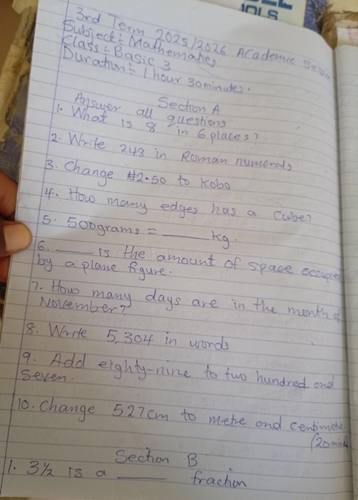 JOLS
3rd Term 2025/2026 Academic
Subject:- Mathematics
Class:- Basic 3
Duration:- 1 hour 30minutes.
Section A
Answer all questions
1. What is 8 in 6 places?
2. Write 243 in Roman numerals
3. Change ₦2.50 to Kobo
4. How many edges has a cube?
5. 500grams = ____ kg.
6. ____ is the amount of space
by a plane figure.
7. How many days are in the month
November?
8. Write 5,304 in words
9. Add eighty-nine to two hundred and
Seven.
10. Change 527cm to metre and
(20
Section B
1. 3½ is a ____ fraction